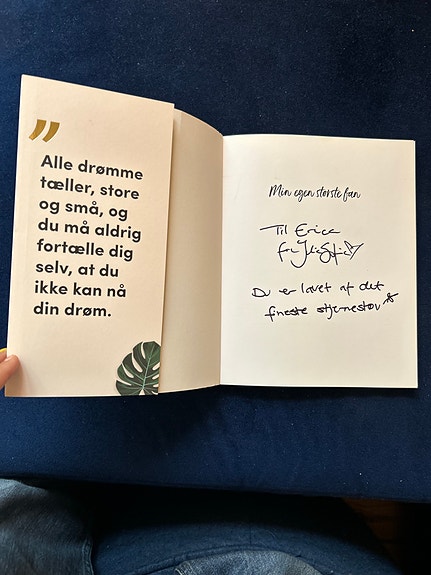 ”
Alle drømme
tæller, store
og små, og
du må aldrig
fortælle dig
selv, at du
ikke kan nå
din drøm.
Min egen største fan
Til Erica
fra Julie Sofie
Du er lavet af det
fineste stjernestøv